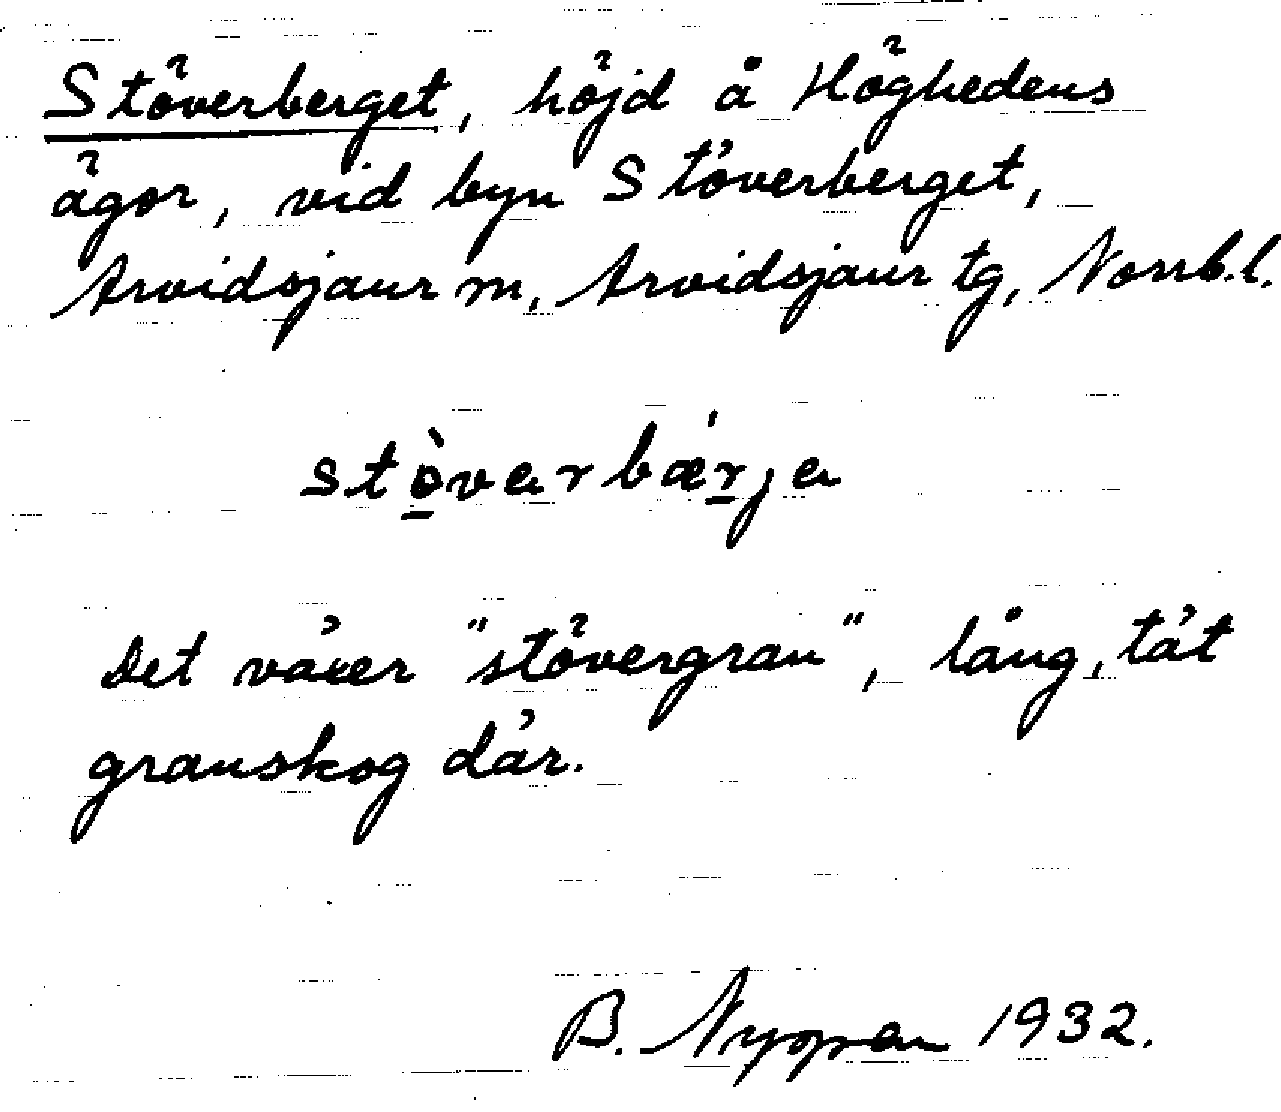 Stöverberget, höjd å Höghedens
ägor, vid byn Stöverberget,
Arvidsjaur m, Arvidsjaur tg, Norrb.l.
stò̲varbǽr̲ja
Det växer "stövergran", lång, tät
granskog där.
B. Nygren 1932.